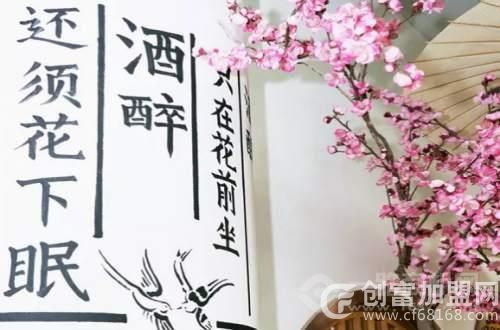 只在花前坐
酒醉
还须花下眠
创富加盟网
www.cf68168.com